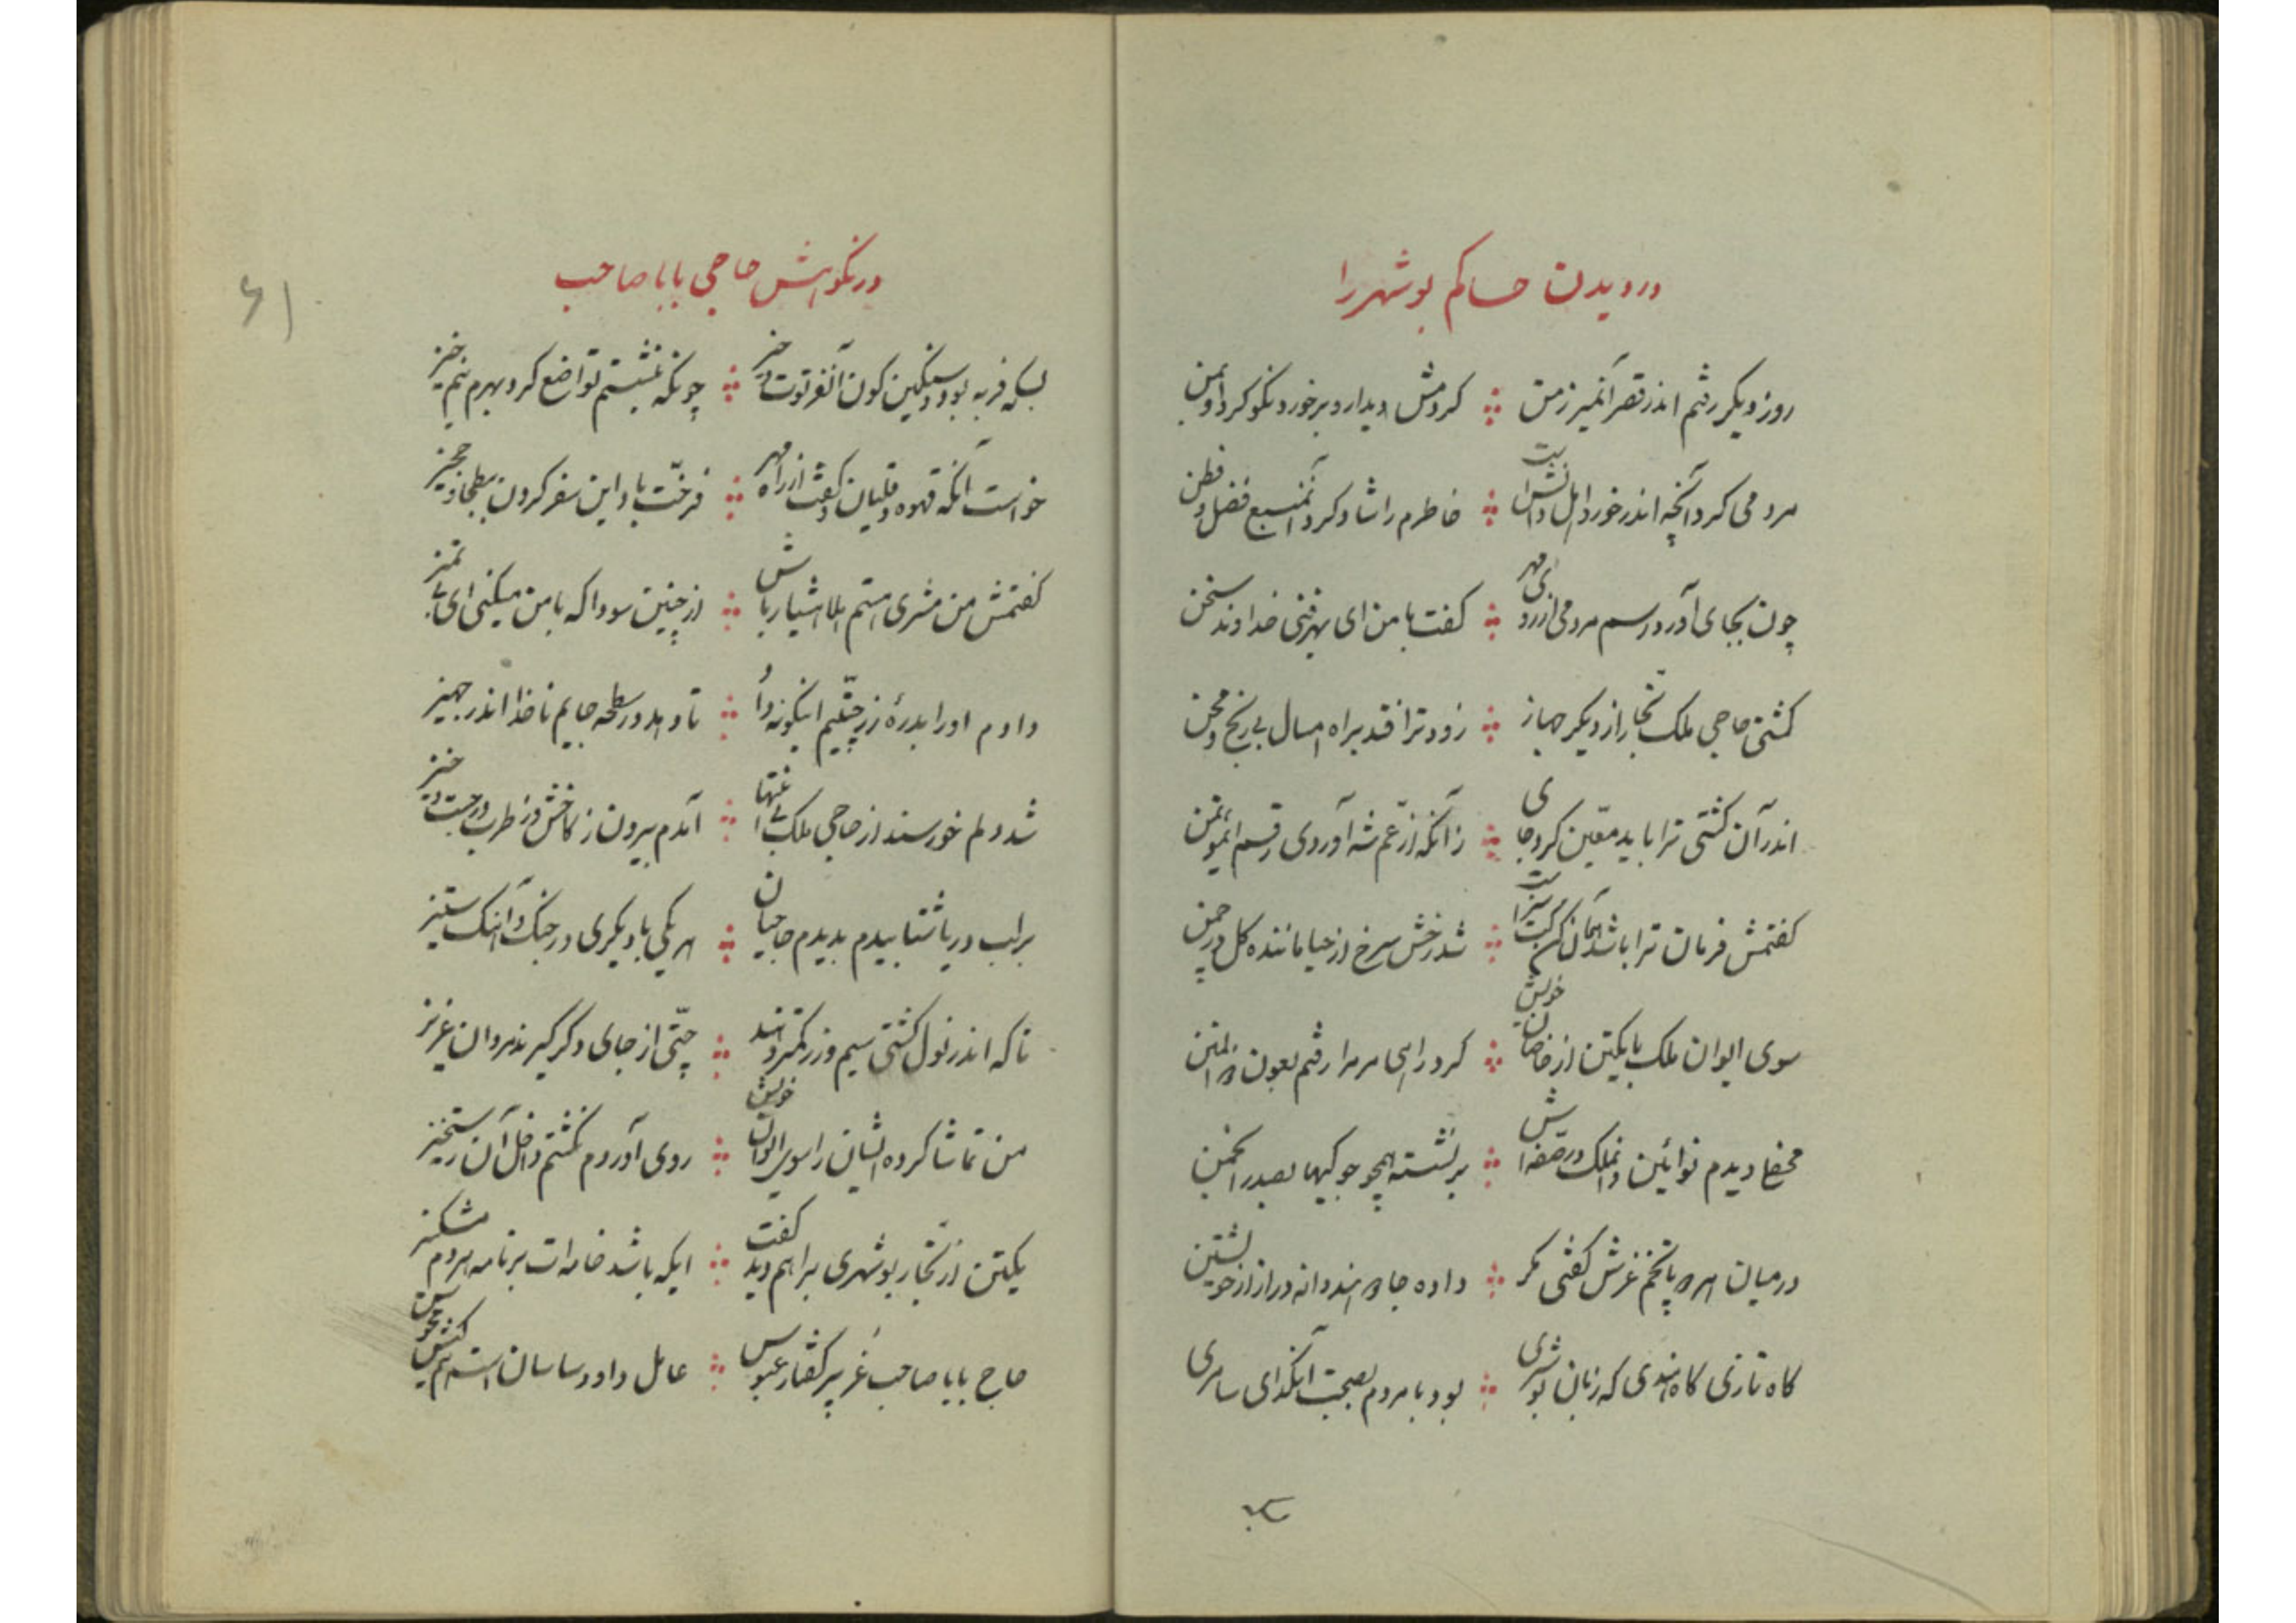 در دیدن حاکم بوشهر را
روز دیگر رفتم اندر قصر آنمیر زمن كردمش دیدار و برخورد نکو کرد او بمن
مردمی کرد آنچه اندر خورد اهل دانش است خاطرم را شاد کرد آنمنبع فضل و فطن
چون بجای آورد رسم مردمی از روی مهر گفت با من ای بهر فنی خداوند سخن
کشتی حاجی ملک تجار از دیگر جهاز زودتر افتد براه امسال بی رنج و محن
اندر آن کشتی ترا باید معین کرد جای زانکه از عم شه آوردی رقم ای مؤتمن
گفتمش فرمان ترا باشد همان کن کت سزاست شد رخش سرخ از حیا مانند گل در چمن
سوی ایوان ملک با یکتن از خاصان خویش کرد راهی مر مرا رفتم بعون ذو المنن
محفلی دیدم نوآئین و انملک در صفه اش بر نشسته همچو جوکیها بصدر انجمن
در میان هر دو پا تخم غرش گفتی مگر داده جا دو هندوانه دراز از خویشتن
گاه تازی گاه هندی گه زبان بوشهری بود با مردم بصحبت آنگدای سامری
بسکه
در نکوهش حاجی بابا صاحب
بسکه فربه بود و سنگین کون آنفرتوت حیز چونکه بنشستم تواضع کرد بهرم نیم خیز
خواست آنگه قهوه و قلیان و گفت از راه مهر فرخت باد این سفر کردن ببطحا و حجیز
گفتمش من مشتری هستم هلا هشیار باش از چنین سودا که با من میکنی ای بی تمیز
دادم او را بدرهٔ زر چتیم اینگونه داد تا دهد در سطحه جایم ناخدا اندر جهیز
شد دلم خورسند از حاجی ملک بی انتها آمدم بیرون ز کاخش وز طرب در جست و خیز
بر لب دریا شتابیدم بدیدم حاجیان هر یکی با دیگری در جنگ و آهنگ ستیز
تا که اندر نول کشتی سیم و زر کمتر دهند چتی از جای دگر گیرند مردان عزیز
من تماشا کرده ایشان را سوی ایوان خویش روی آوردم نگشتم داخل آن رستخیز
یکتن از تجار بوشهری براهم دید گفت ایکه باشد خامه ات بر نامه هر دم مشکبیز
حاج بابا صاحب غر پیر کفتار عبوس عامل داود ساسان است هم کیش مجوس
۶۱